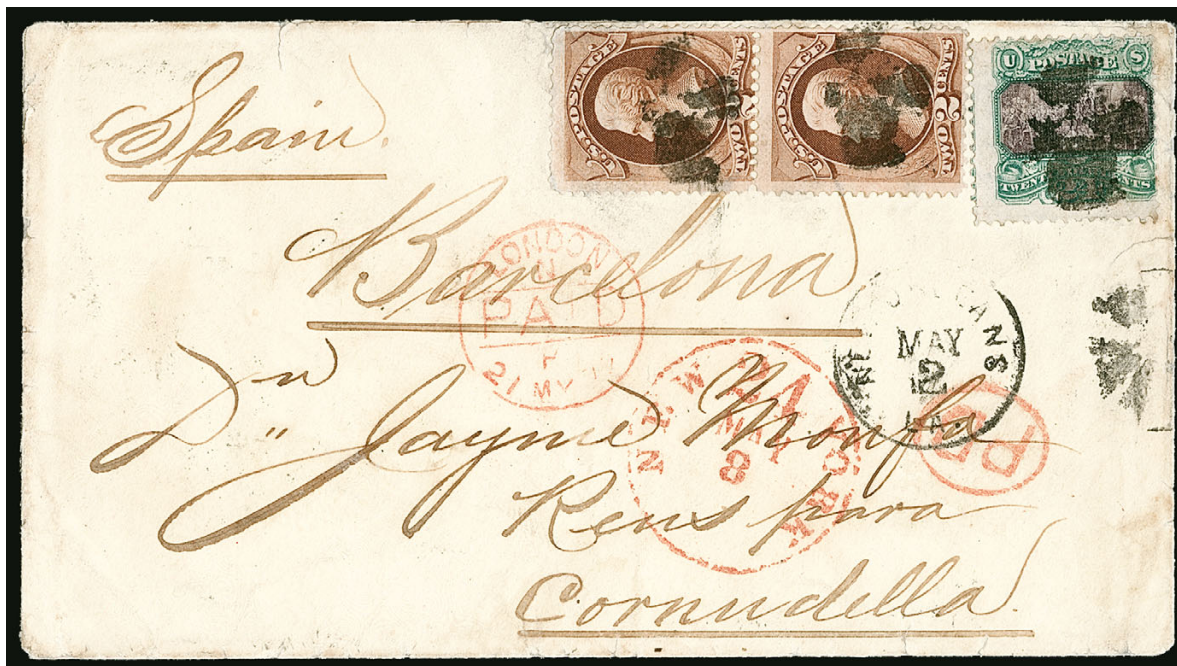 U.S. POSTAGE
TWO CENTS
U.S. POSTAGE
TWO CENTS
U S
POSTAGE
TWENTY CENTS
Spain.
Barcelona
LONDON
PAID
21 MY
NEW ORLEANS
MAY
2
LA.
Dn
Dn Jayme Monfa
NEW YORK
24
MAY
8
PD
Reus para
Cornudella.